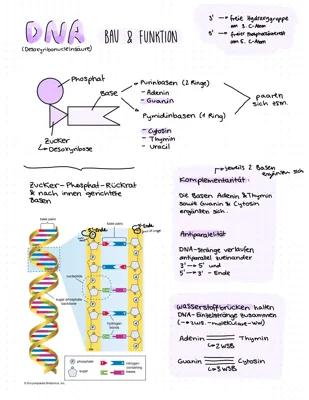 DNA
(Desoxyribonucleinsäure)
BAU & FUNKTION
3' → freie Hydroxygruppe
am 3. C-Atom
5' → freier Phosphatrest
am 5. C-Atom
Phosphat
Base
Zucker
↳ Desoxyribose
Purinbasen (2 Ringe)
- Adenin
- Guanin
Pyrimidinbasen (1 Ring)
- Cytosin
- Thymin
- Uracil
paaren
sich stm.
Zucker-Phosphat-Rückrat
& nach innen gerichtete
Basen
→ jeweils 2 Basen
ergänzen sich
Komplementarität:
Die Basen Adenin & Thymin
sowie Guanin & Cytosin
ergänzen sich.
Antiparallelität
DNA-Stränge verlaufen
antiparallel zueinander
3' → 5' und
5' → 3' - Ende
Wasserstoffbrücken halten
DNA-Einzelstränge zusammen
Adenin Thymin
↳ 2 WSB
Guanin Cytosin
↳ 3 WSB
base pairs
5'-Ende
base pairs
3'-Ende
nucleotide
sugar-phosphate
backbone
hydrogen
bonds
phosphate
sugar
nitrogen-
containing
bases
© Encyclopædia Britannica, Inc.